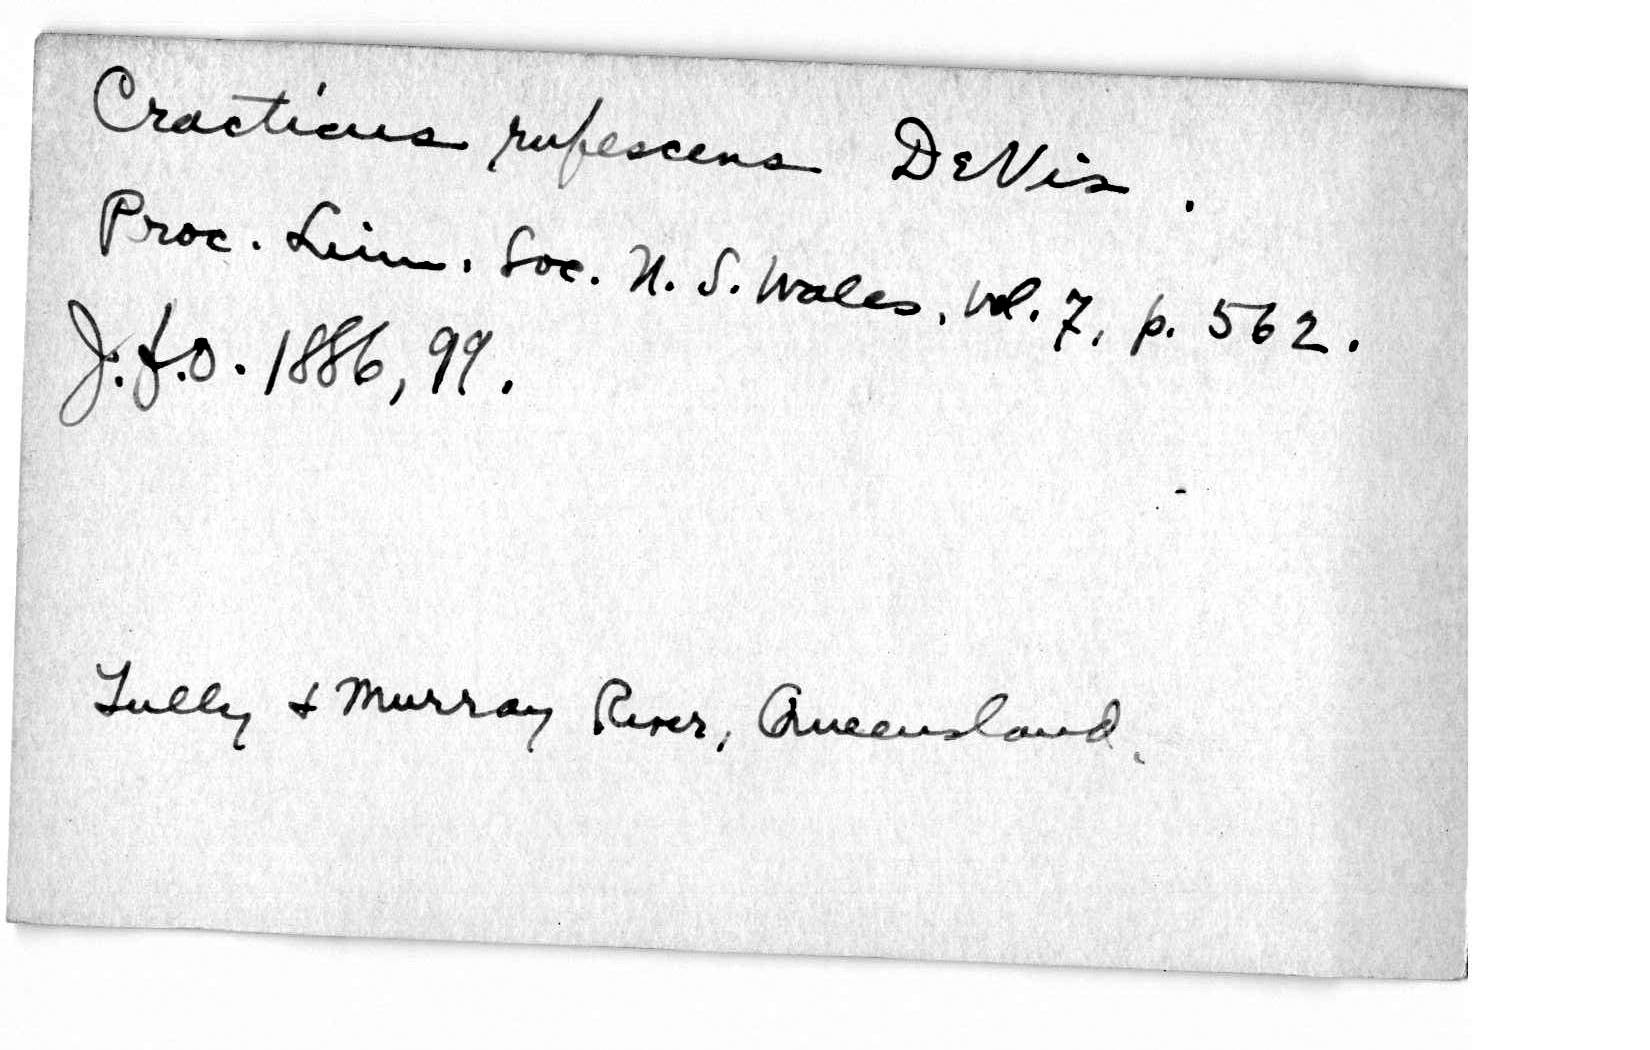 Cracticus rufescens DeVis.
Proc. Linn. Soc. N. S. Wales, vol. 7, p. 562.
J.f.O. 1886, 99.
Tully & Murray River, Queensland.